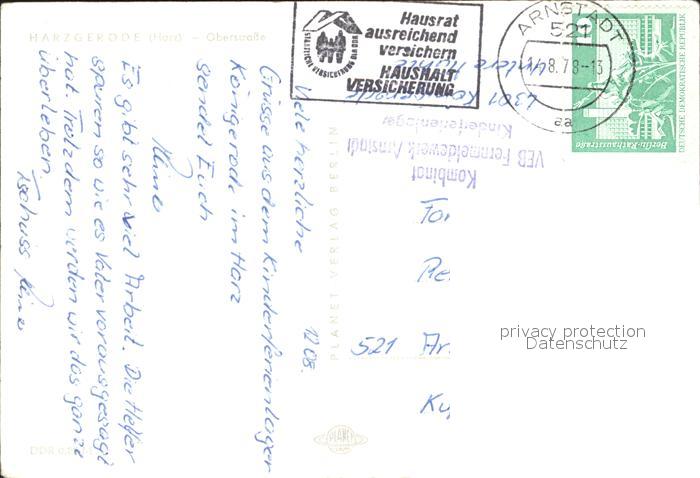 HARZGERODE (Harz) – Oberstraße
12.08.
Viele herzliche
Grüsse aus dem Kinderferienlager
Königerode im Harz
sendet Euch
Es gibt sehr viel Arbeit. Die Helfer
spuren so wie es Vater vorausgesagt
hat. Trotzdem werden wir das ganze
überleben.
Tschüss
PLANET VERLAG BERLIN
PLANET
DDR
STAATLICHE VERSICHERUNG DER DDR
Hausrat
ausreichend
versichern
HAUSHALT
VERSICHERUNG
ARNSTADT
521
8.78-13
aa
10
Berlin-Rathausstraße
DEUTSCHE DEMOKRATISCHE REPUBLIK
Kombinat
VEB Fernmeldewerk Arnstadt
Kinderferienlager
4301 Königerode
521 Ar
privacy protection
Datenschutz